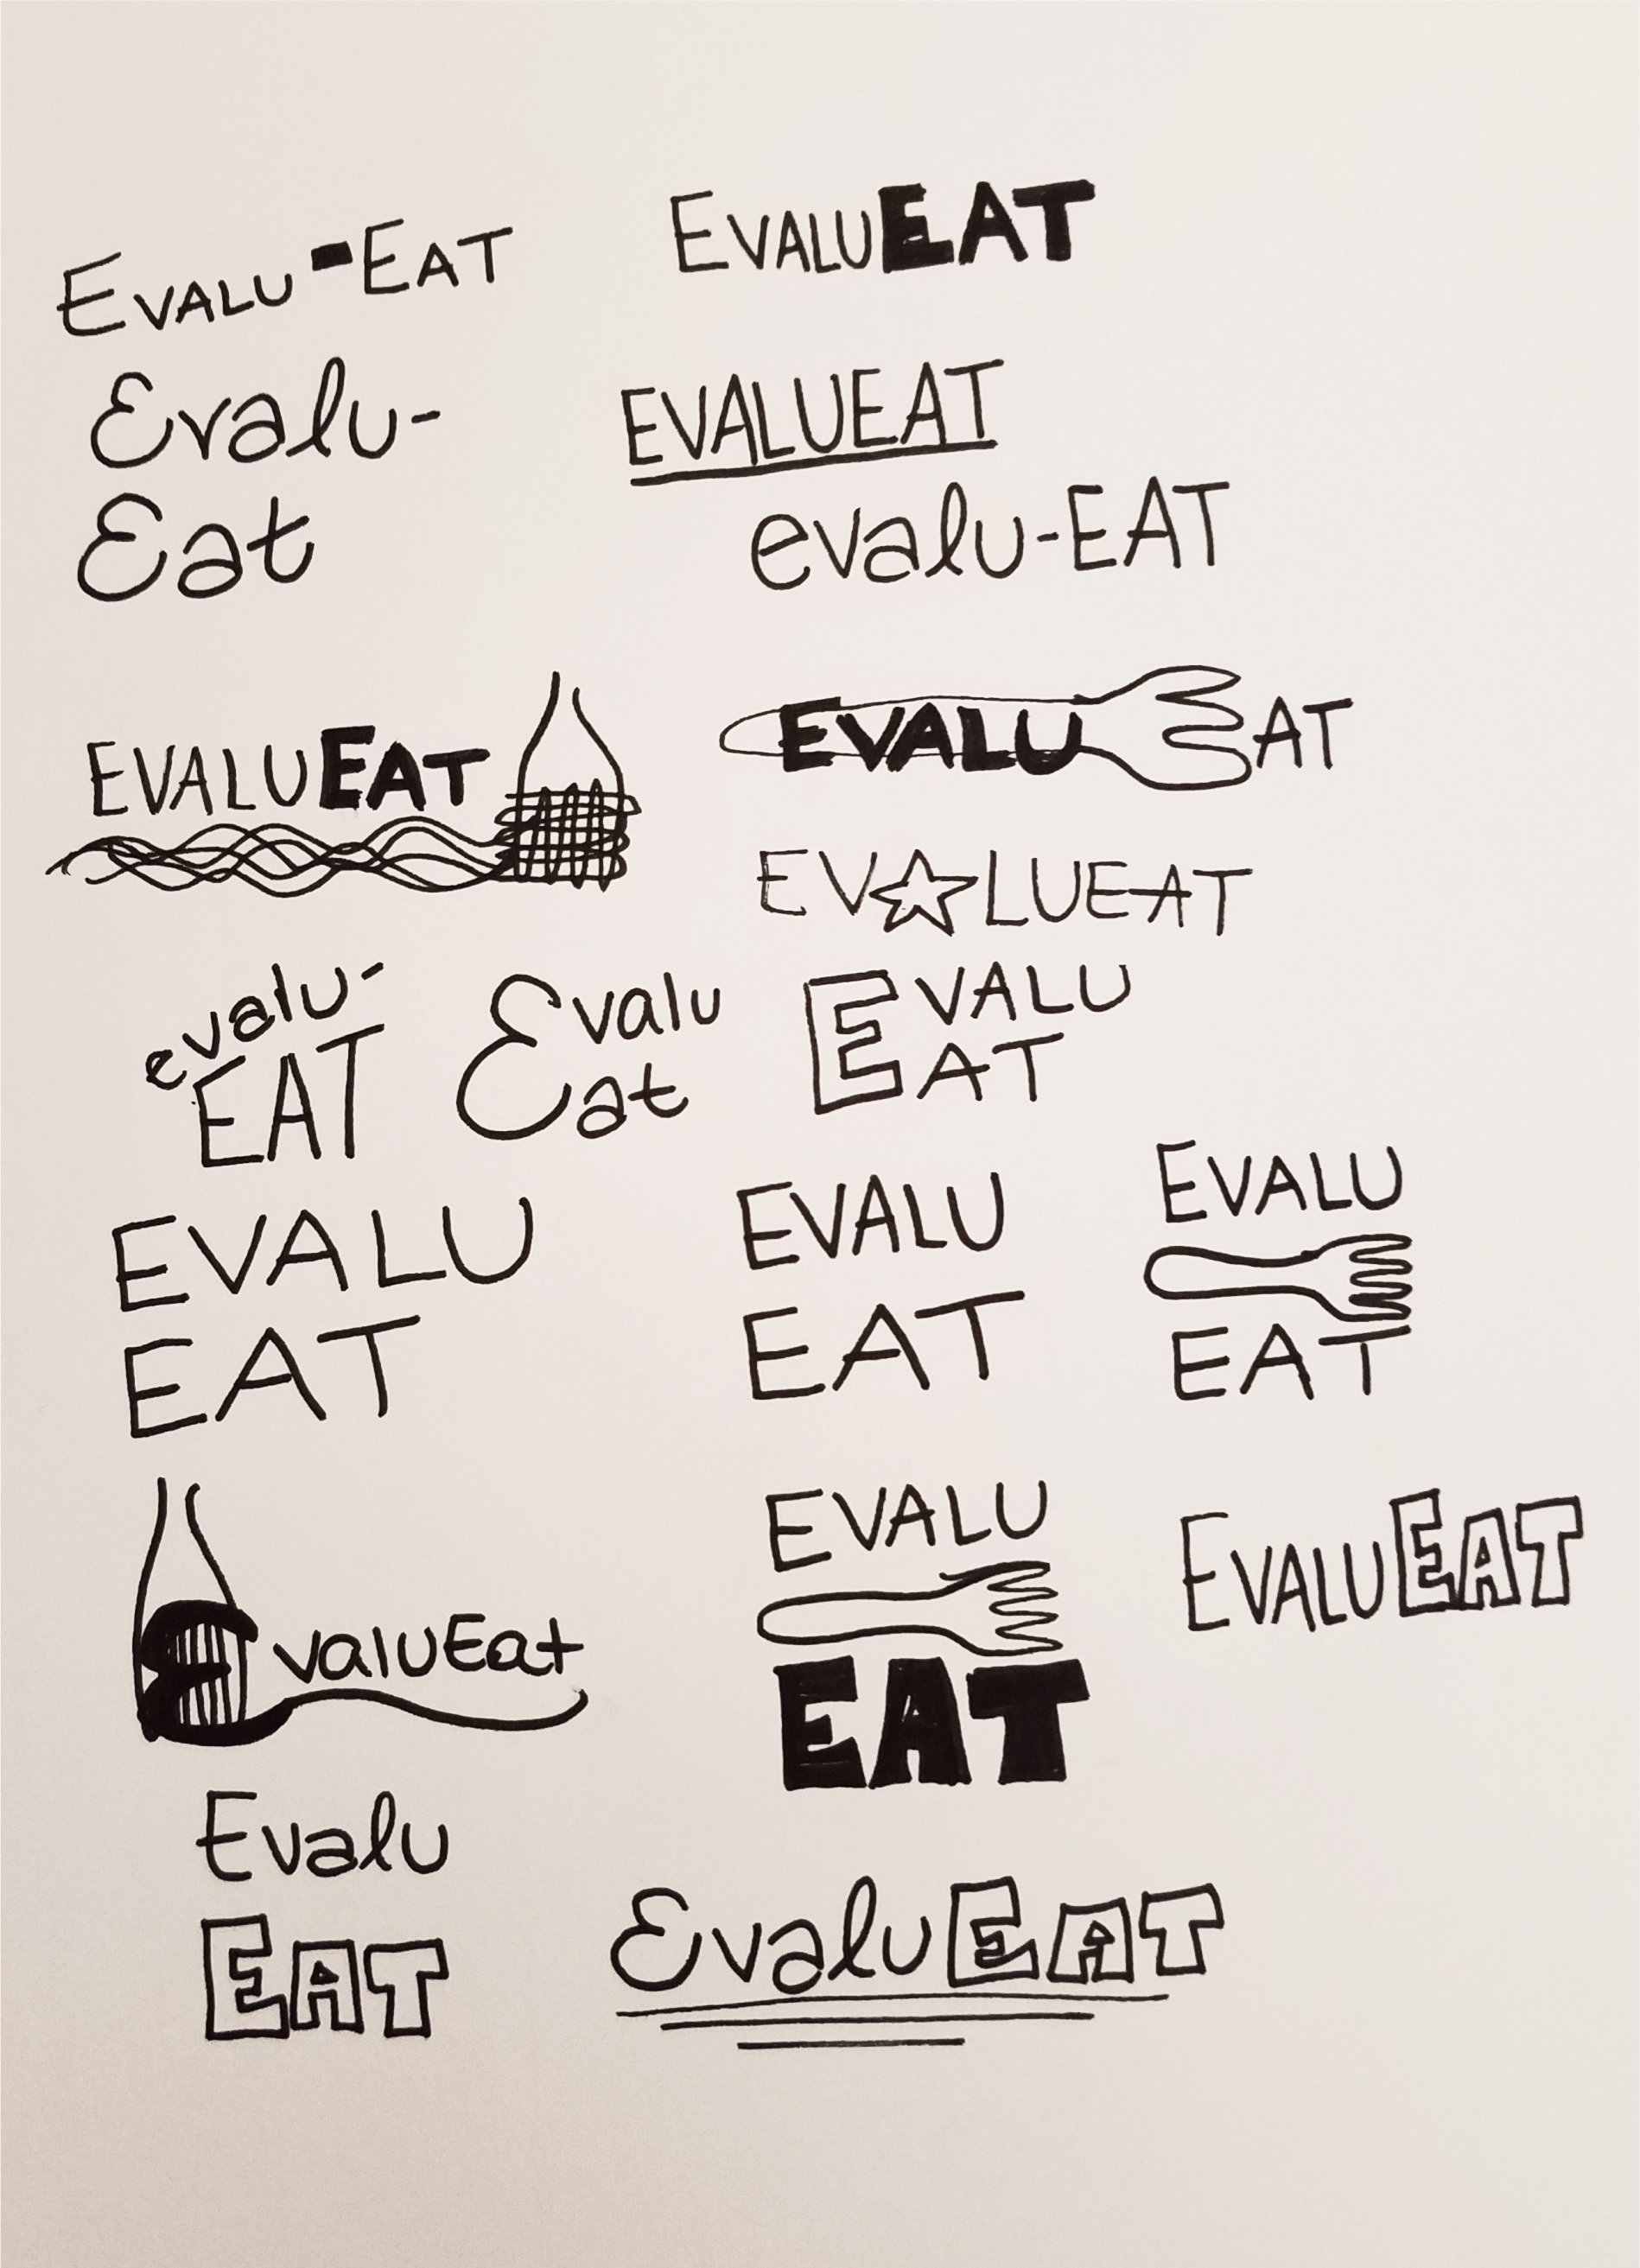 EVALU-EAT
EVALUEAT
Evalu-
Eat
EVALUEAT
evalu-EAT
EVALUEAT
EVALUEAT
EV☆LUEAT
evalu-
EAT
Evalu
Eat
EVALU
EAT
EVALU
EAT
EVALU
EAT
EVALU
EAT
EvaluEat
EVALU
EAT
EVALUEAT
Evalu
EAT
EvaluEAT